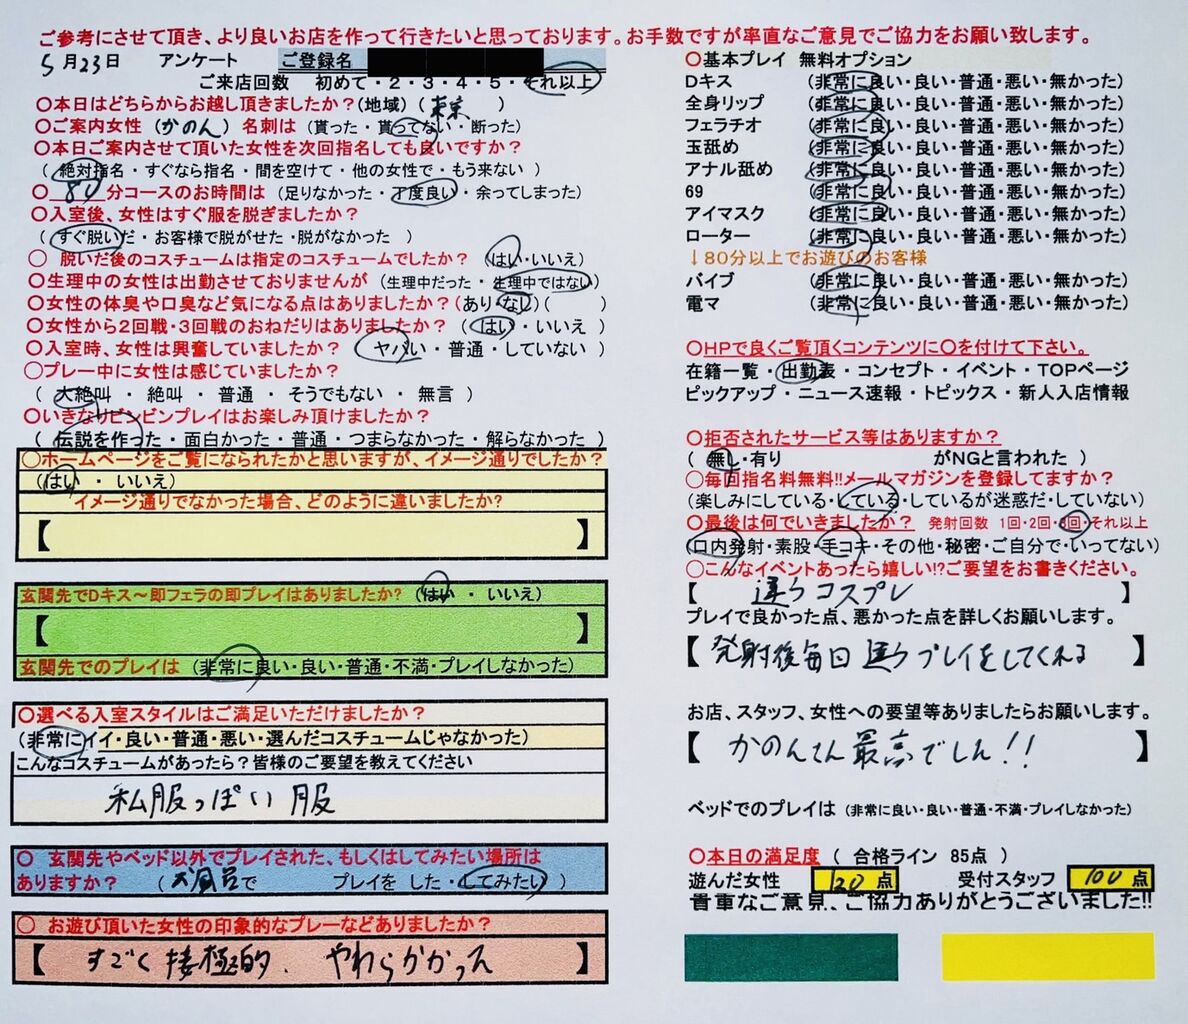 ご参考にさせて頂き、より良いお店を作って行きたいと思っております。お手数ですが率直なご意見でご協力をお願い致します。
5月23日 アンケート ご登録名
ご来店回数 初めて・2・3・4・5・それ以上
〇本日はどちらからお越し頂きましたか?(地域)(東京)
〇ご案内女性(かのん)名刺は(貰った・貰ってない・断った)
〇本日ご案内させて頂いた女性を次回指名しても良いですか?
(絶対指名・すぐなら指名・間を空けて・他の女性で・もう来ない)
〇 80分コースのお時間は(足りなかった・丁度良い・余ってしまった)
〇入室後、女性はすぐ服を脱ぎましたか?
(すぐ脱いだ・お客様で脱がせた・脱がなかった)
〇 脱いだ後のコスチュームは指定のコスチュームでしたか?(はい・いいえ)
〇生理中の女性は出勤させておりませんが(生理中だった・生理中ではない)
〇女性の体臭や口臭など気になる点はありましたか?(あり・なし)( )
〇女性から2回戦・3回戦のおねだりはありましたか?(はい・いいえ)
〇入室時、女性は興奮していましたか?(ヤバい・普通・していない)
〇プレー中に女性は感じていましたか?
(大絶叫・絶叫・普通・そうでもない・無言)
〇いきなりビンビンプレイはお楽しみ頂けましたか?
(伝説を作った・面白かった・普通・つまらなかった・解らなかった)
〇ホームページをご覧になられたかと思いますが、イメージ通りでしたか?
(はい・いいえ)
イメージ通りでなかった場合、どのように違いましたか?
【 】
玄関先でDキス～即フェラの即プレイはありましたか?(はい・いいえ)
【 】
玄関先でのプレイは(非常に良い・良い・普通・不満・プレイしなかった)
〇選べる入室スタイルはご満足いただけましたか?
(非常にイイ・良い・普通・悪い・選んだコスチュームじゃなかった)
こんなコスチュームがあったら?皆様のご要望を教えてください
私服っぽい服
〇 玄関先やベッド以外でプレイされた、もしくはしてみたい場所は
ありますか?(お風呂で プレイを した・してみたい)
〇 お遊び頂いた女性の印象的なプレーなどありましたか?
【すごく 積極的、 やわらかかった】
〇基本プレイ 無料オプション
Dキス (非常に良い・良い・普通・悪い・無かった)
全身リップ (非常に良い・良い・普通・悪い・無かった)
フェラチオ (非常に良い・良い・普通・悪い・無かった)
玉舐め (非常に良い・良い・普通・悪い・無かった)
アナル舐め (非常に良い・良い・普通・悪い・無かった)
69 (非常に良い・良い・普通・悪い・無かった)
アイマスク (非常に良い・良い・普通・悪い・無かった)
ローター (非常に良い・良い・普通・悪い・無かった)
↓80分以上でお遊びのお客様
バイブ (非常に良い・良い・普通・悪い・無かった)
電マ (非常に良い・良い・普通・悪い・無かった)
〇HPで良くご覧頂くコンテンツに〇を付けて下さい。
在籍一覧・出勤表・コンセプト・イベント・TOPページ
ピックアップ・ニュース速報・トピックス・新人入店情報
〇拒否されたサービス等はありますか?
(無し・有り がNGと言われた)
〇毎回指名料無料!!メールマガジンを登録してますか?
(楽しみにしている・している・しているが迷惑だ・していない)
〇最後は何でいきましたか? 発射回数 1回・2回・3回・それ以上
(口内発射・素股・手コキ・その他・秘密・ご自分で・いってない)
〇こんなイベントあったら嬉しい!?ご要望をお書きください。
【違うコスプレ】
プレイで良かった点、悪かった点を詳しくお願いします。
【発射後毎回 違うプレイをしてくれる】
お店、スタッフ、女性への要望等ありましたらお願いします。
【かのんさん 最高でした!!】
ベッドでのプレイは(非常に良い・良い・普通・不満・プレイしなかった)
〇本日の満足度(合格ライン 85点)
遊んだ女性 120点 受付スタッフ 100点
貴重なご意見、ご協力ありがとうございました!!